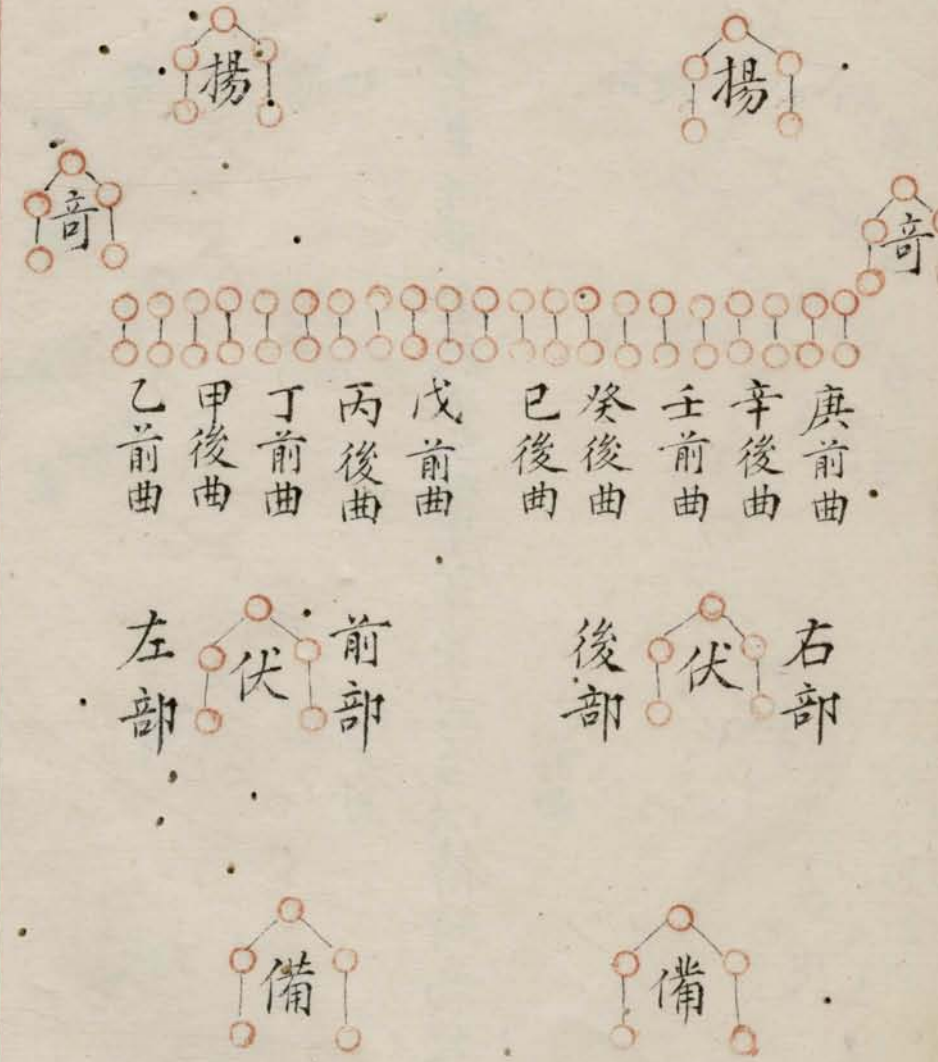 揚
揚
奇
奇
庚前曲
辛後曲
壬前曲
癸後曲
已後曲
戊前曲
丙後曲
丁前曲
甲後曲
乙前曲
右部
伏
後部
前部
伏
左部
備
備